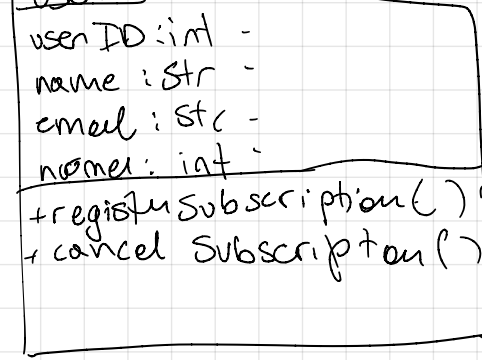 userID:int -
name : str -
email : str -
nomer: int -
+registerSubscription()
+ cancel Subscription()